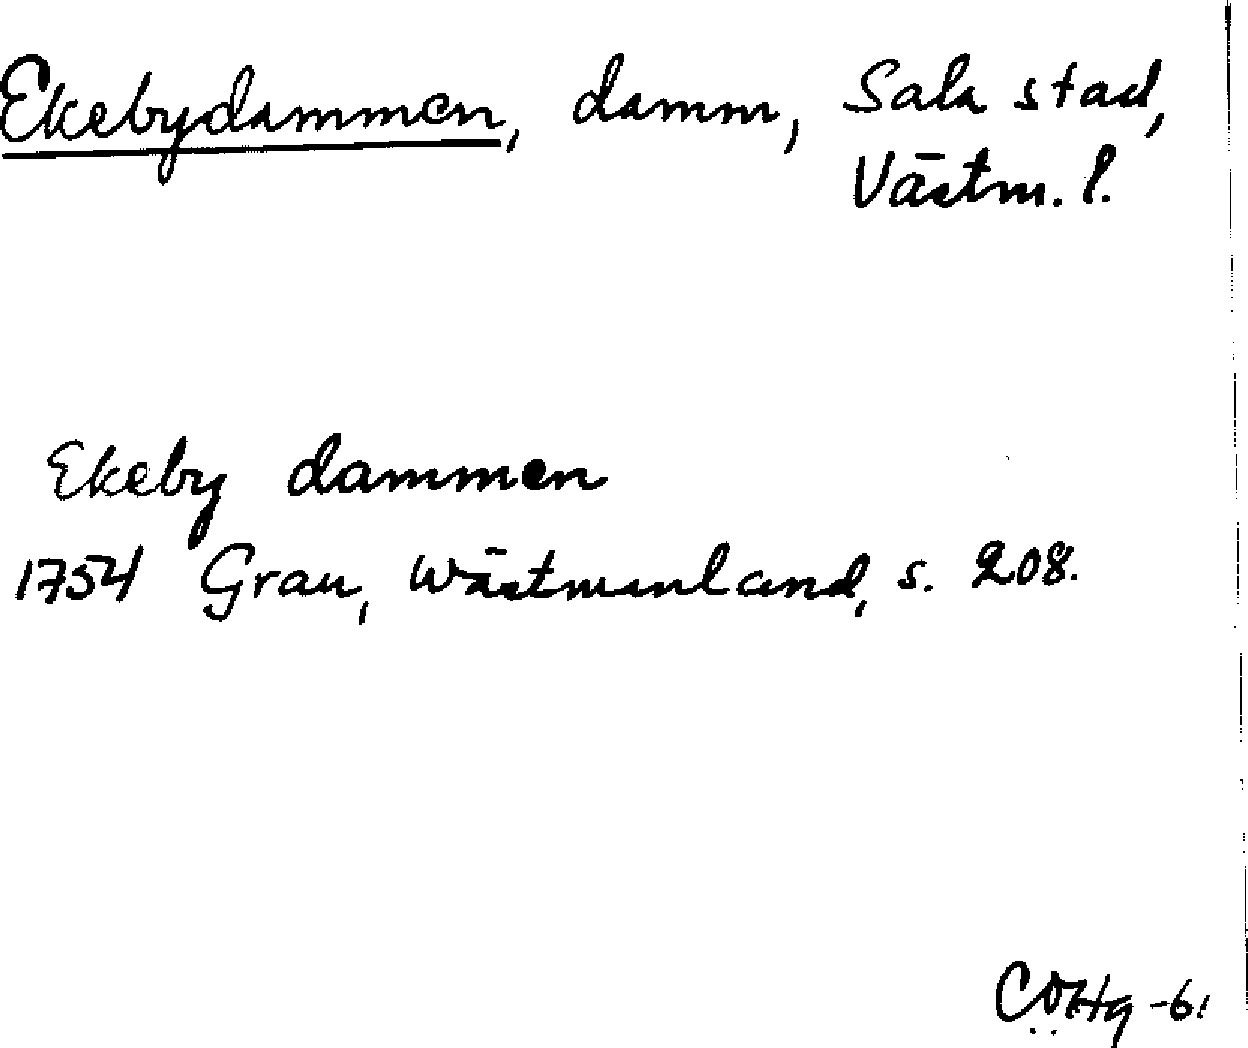 Ekebydammen, damm, Sala stad,
Västm. l.
Ekeby dammen
1754 Grau, Wästmanland, s. 208.